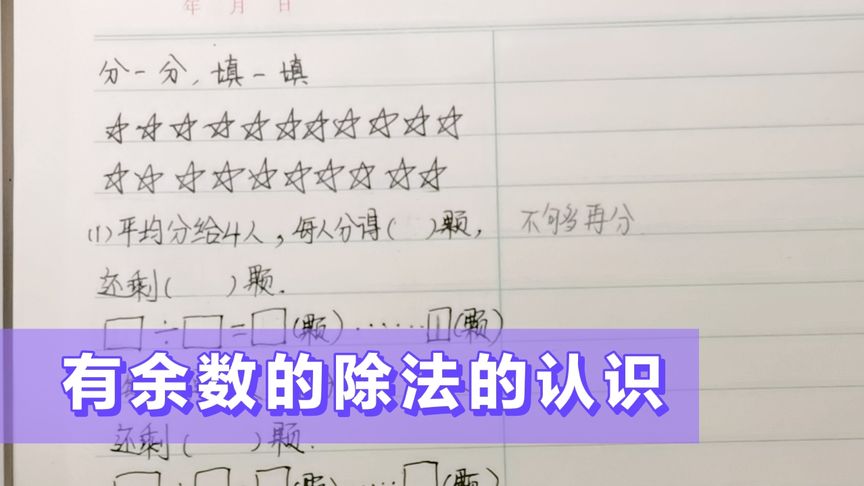 年 月 日
分一分,填一填
☆☆☆☆☆☆☆☆☆☆☆
☆☆☆☆☆☆☆☆☆☆
(1)平均分给4人,每人分得( )颗, 不够再分
还剩( )颗.
□÷□=□(颗)……□(颗)
有余数的除法的认识
还剩( )颗.
□÷□=□(颗)……□(颗)